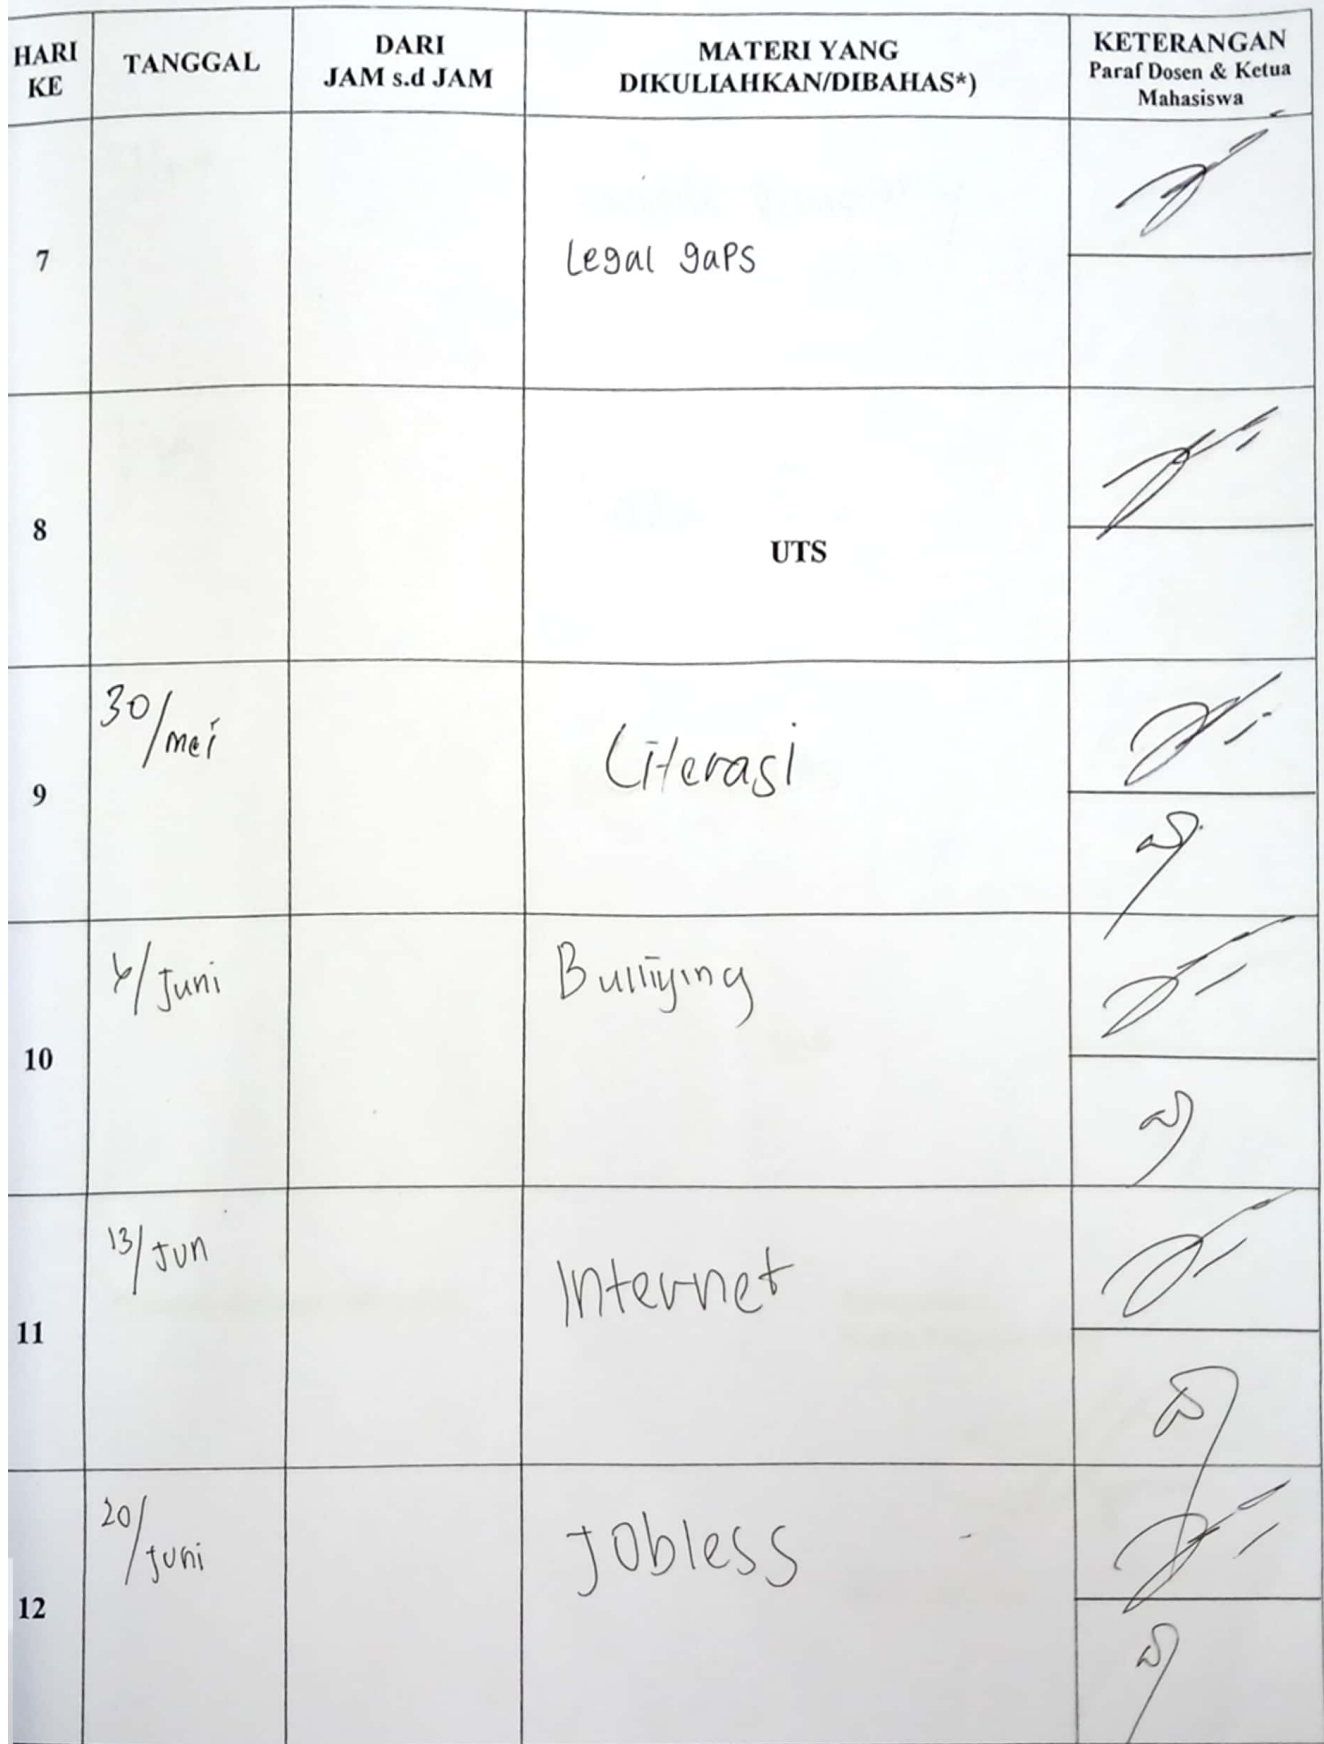 HARI KE
TANGGAL
DARI
JAM s.d JAM
MATERI YANG
DIKULIAHKAN/DIBAHAS*)
KETERANGAN
Paraf Dosen & Ketua
Mahasiswa
7
Legal gaps
8
UTS
9
30/mei
Literasi
10
/Juni
Bulliying
11
13/Jun
Internet
12
20/Juni
Jobless